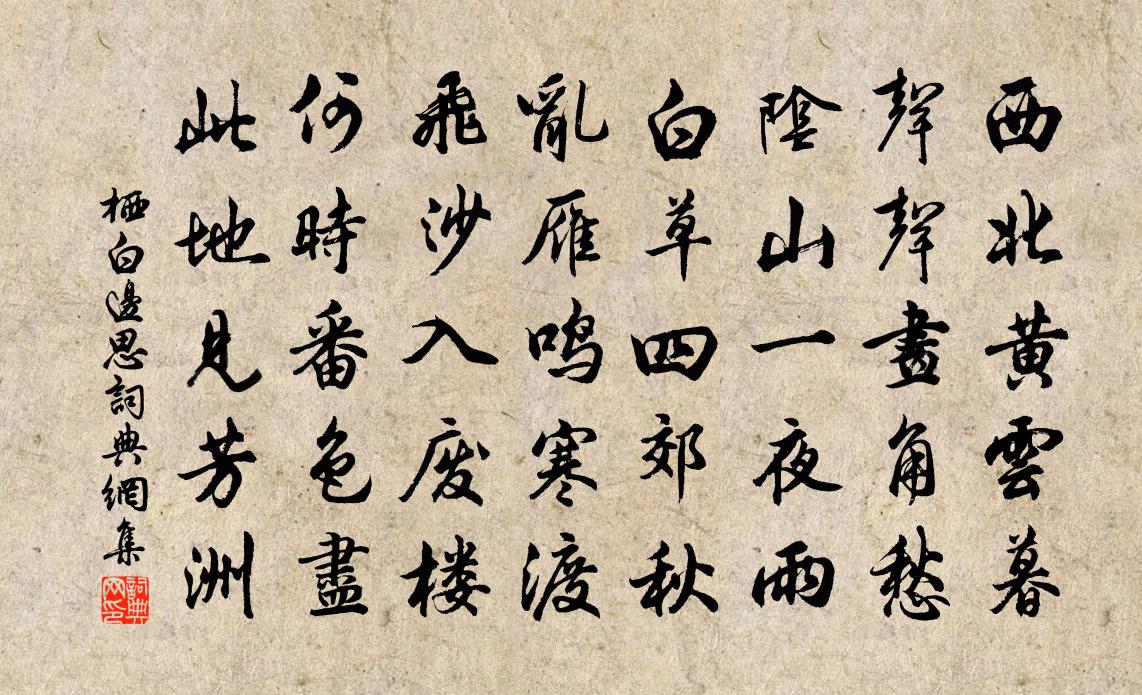 西北黄雲暮
聲聲畫角愁
陰山一夜雨
白草四郊秋
亂雁鳴寒渡
飛沙入废楼
何時番色盡
此地見芳洲
栖白邊思詞典網集
詞典網印